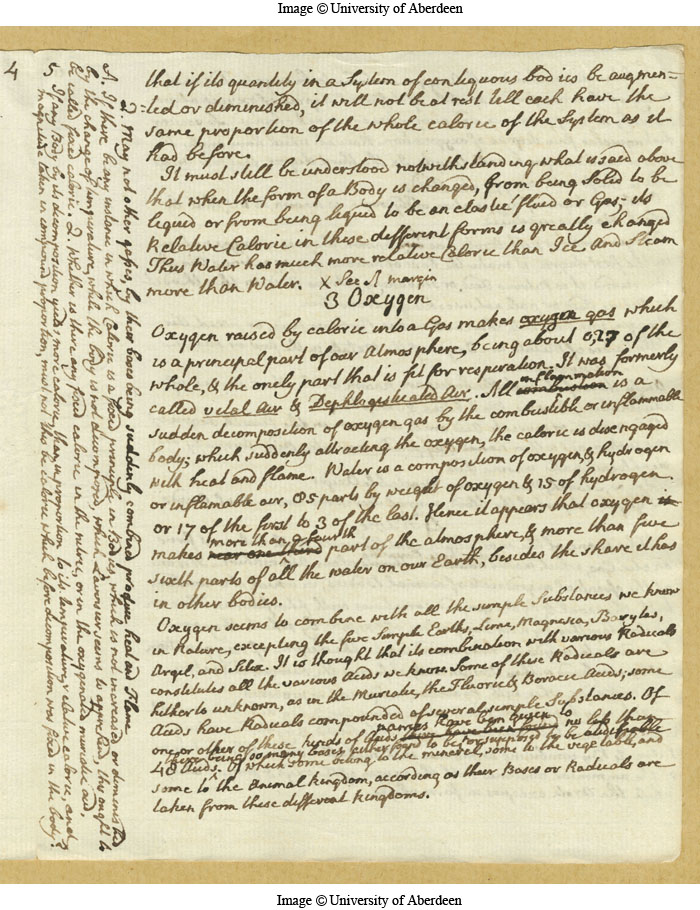 Image © University of Aberdeen
4
that if its quantity in a System of contiguous bodies be augmen=
=ted or diminished, it will not be at rest till each have the
same proportion of the whole calorie of the System as it
had before.
It must still be understood notwithstanding what is said above
that when the form of a Body is changed, from being Solid to be
liquid or from being liquid to be an elastic fluid or Gas; its
Relative Calorie in these different forms is greatly changed
Thus Water has much more relative Calorie than Ice And Steam
more than Water. X See A margin
3 Oxygen
Oxygen raised by calorie into a Gas makes oxygen gas which
is a principal part of our Atmosphere, being about 0,27 of the
whole, & the onely part that is fit for respiration. It was formerly
called vital air & Dephlogisticated Air. All inflammation
combustion is a
sudden decomposition of oxygen gas by the combustible or inflammable
body; which suddenly attracting the oxygen, the calorie is disengaged
with heat and flame. Water is a composition of oxygen, & hydrogen
or inflamable air, 85 parts by weight of oxygen & 15 of hydrogen
or 17 of the first to 3 of the last. Hence it appears that oxygen
more than a fourth
makes near one third part of the atmosphere, & more than five
sixth parts of all the water on our Earth, besides the share it has
in other bodies.
Oxygen seems to combine with all the simple Substances we know
in Nature, excepting the five Simple Earths, Lime, Magnesia, Barytes,
Argil, and Silex. It is thought that its combination with various Radicals
constitutes all the various Acids we know. Some of these Radicals are
hitherto unknown, as in the Muriatic, the Fluoric & Boracic Acids; some
Acids have Radicals compounded of several simple Substances. Of
names have been given to
one or other of these kinds of Acids there have been found no less than
there being so many bases either found to be or supposed to be acidifiable
48 Acids. Of which some belong to the mineral some to the vegetable, and
some to the Animal kingdom, according as their Bases or Radicals are
taken from these different kingdoms.
2. May not other gases, by their bases being suddenly combined produce heat and Flame
A. If there be any instance in which Calorie is a fixed principle in Bodies, which is not increased or diminished
by the change of temperature, while the body is not decomposed, which Lavoisier seems to apprehend, this ought to
be called fixed calorie. Q Whether is there any fixed calorie in the nitre, or in the oxygenated muriatic acid,
5 If any Body by its decomposition yields more calorie than in proportion to its temperature, relative calorie, and
magnitude taken in compound proportion, must not this be calorie which before decomposition was fixed in the body?
Image © University of Aberdeen